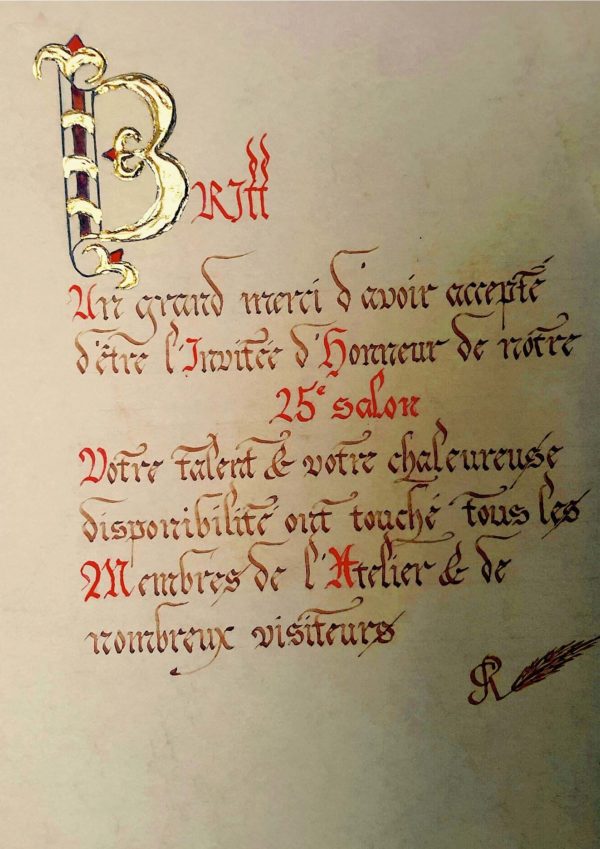 Britt
Un grand merci d'avoir accepté
d'être l'Invitée d'Honneur de nôtre
25e salon
Votre talent & votre chaleureuse
disponibilité ont touché tous les
Membres de l'Atelier & de
nombreux visiteurs